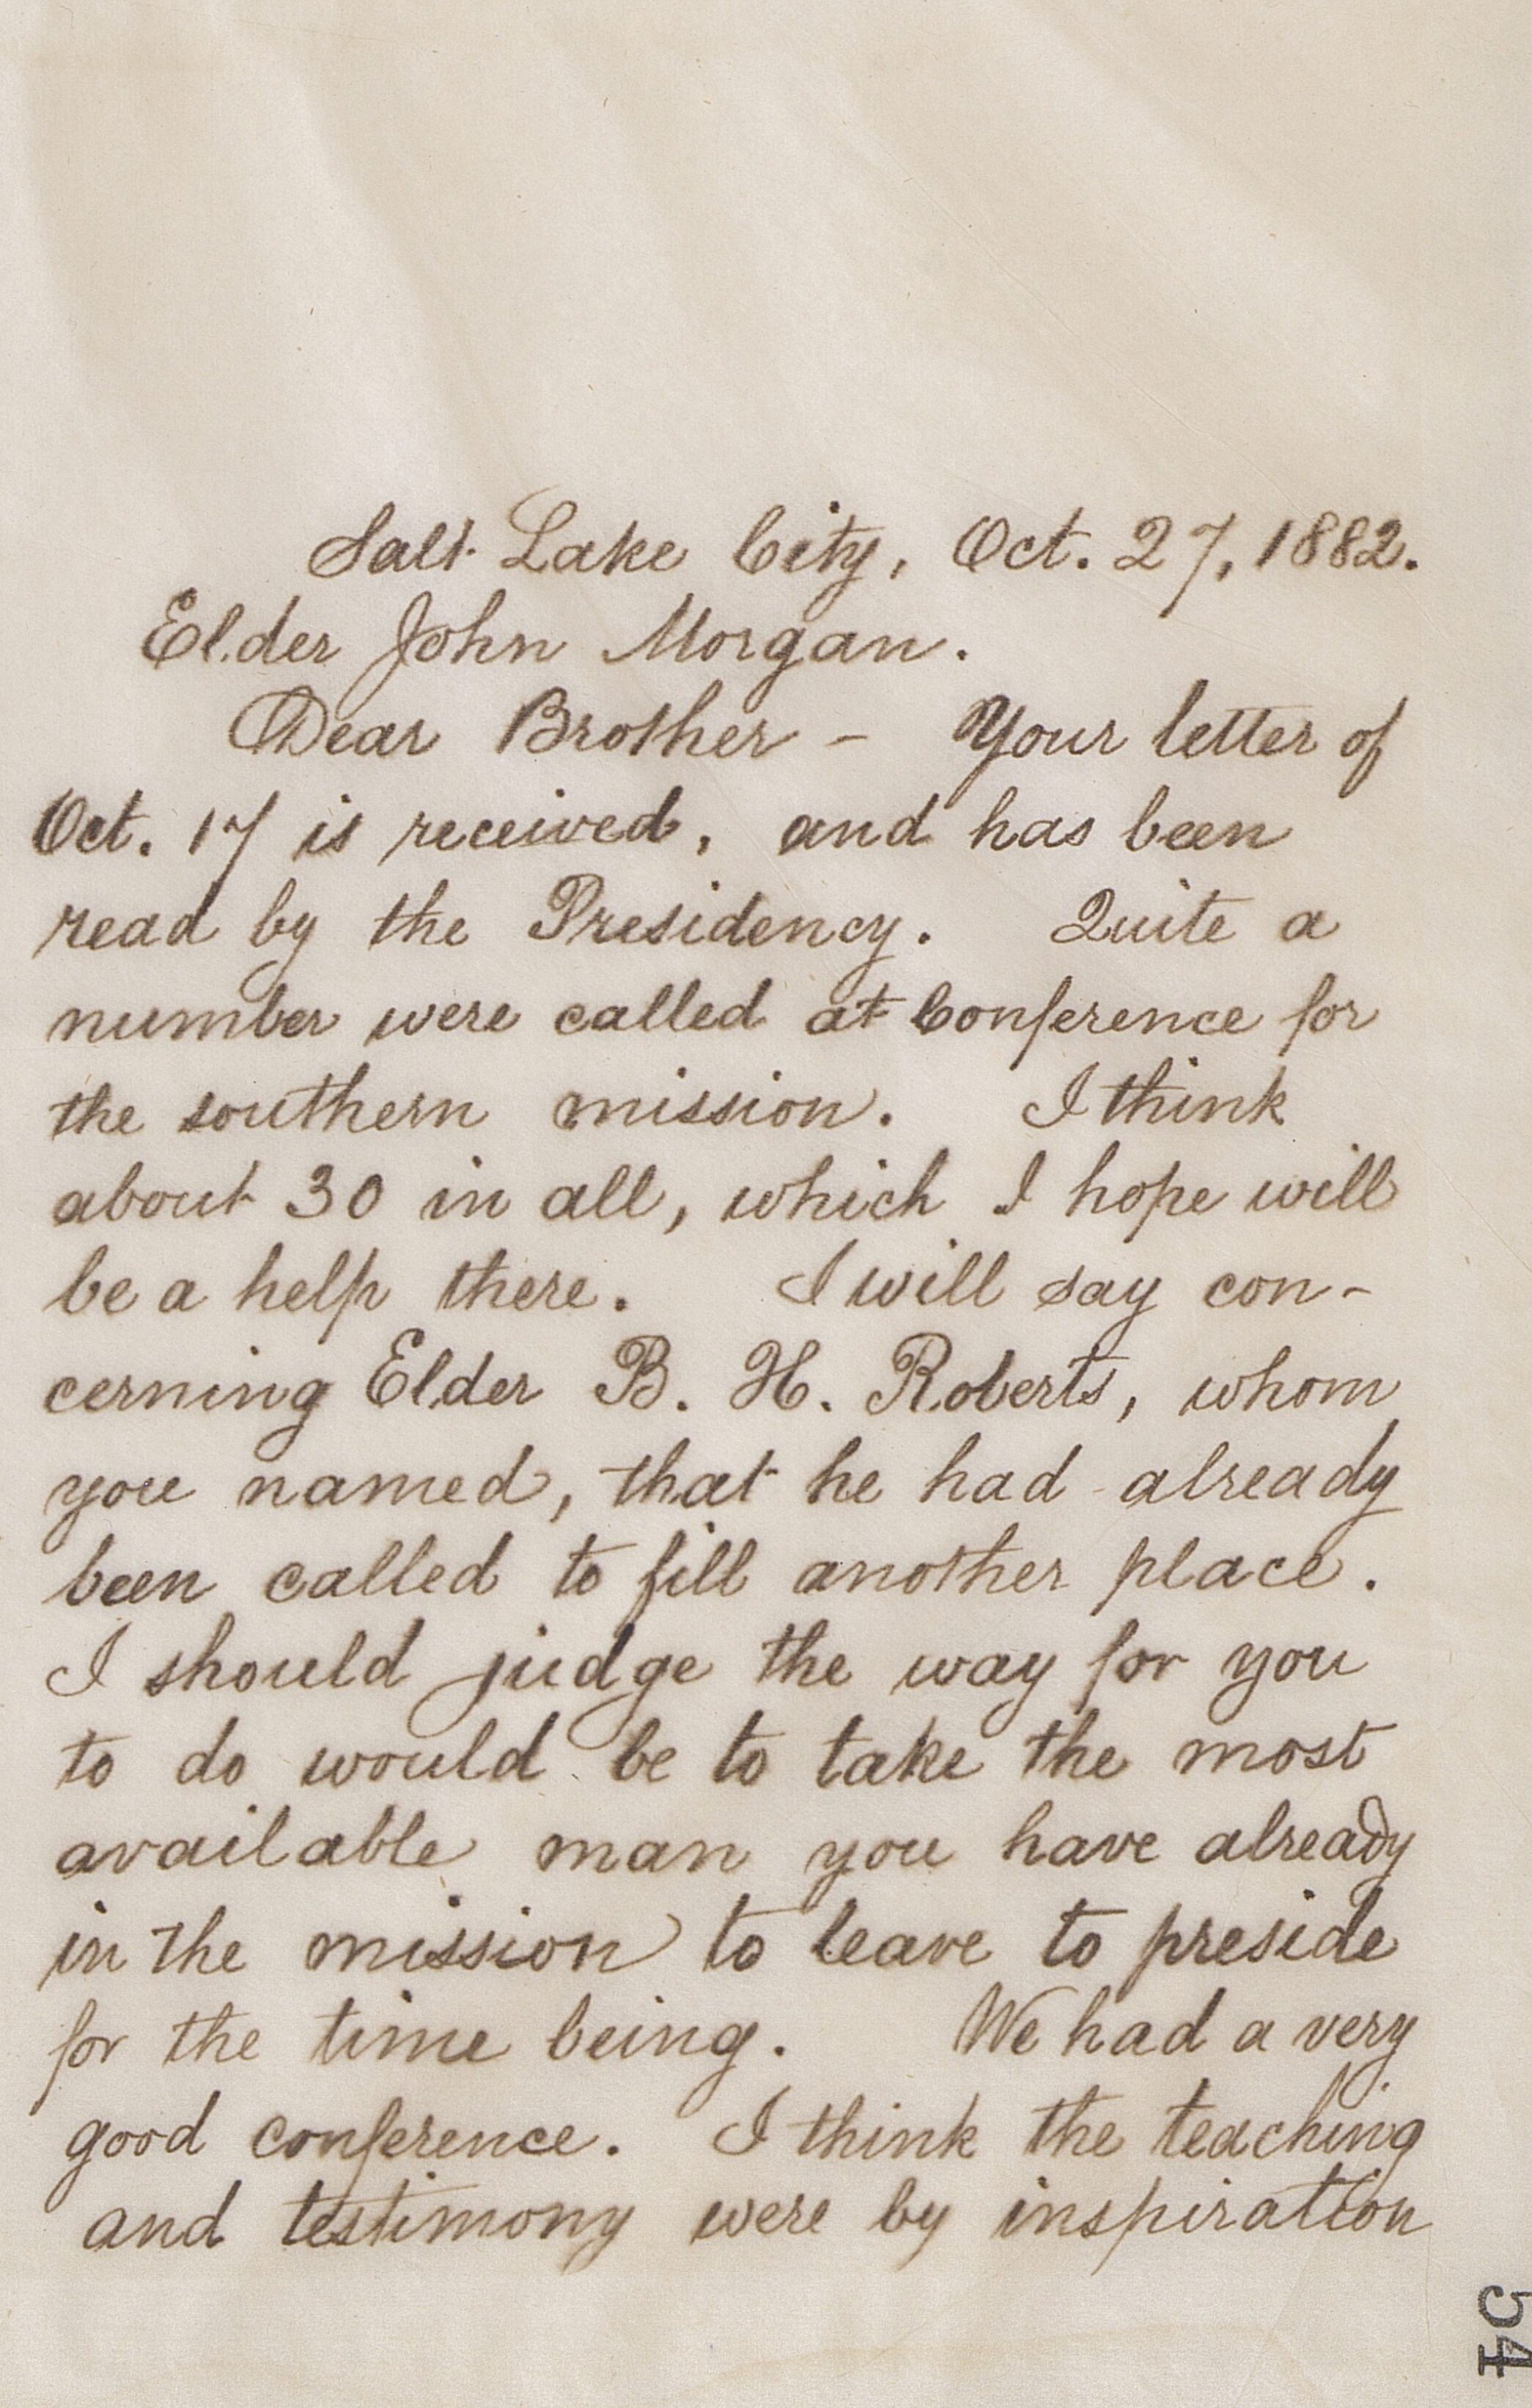 Salt Lake City, Oct. 27, 1882.
Elder John Morgan.
Dear Brother - Your letter of
Oct. 17 is received, and has been
read by the Presidency. Quite a
number were called at Conference for
the southern mission. I think
about 30 in all, which I hope will
be a help there. I will say con-
cerning Elder B. H. Roberts, whom
you named, that he had already
been called to fill another place.
I should judge the way for you
to do would be to take the most
available man you have already
in the mission to leave to preside
for the time being. We had a very
good conference. I think the teaching
and testimony were by inspiration
54